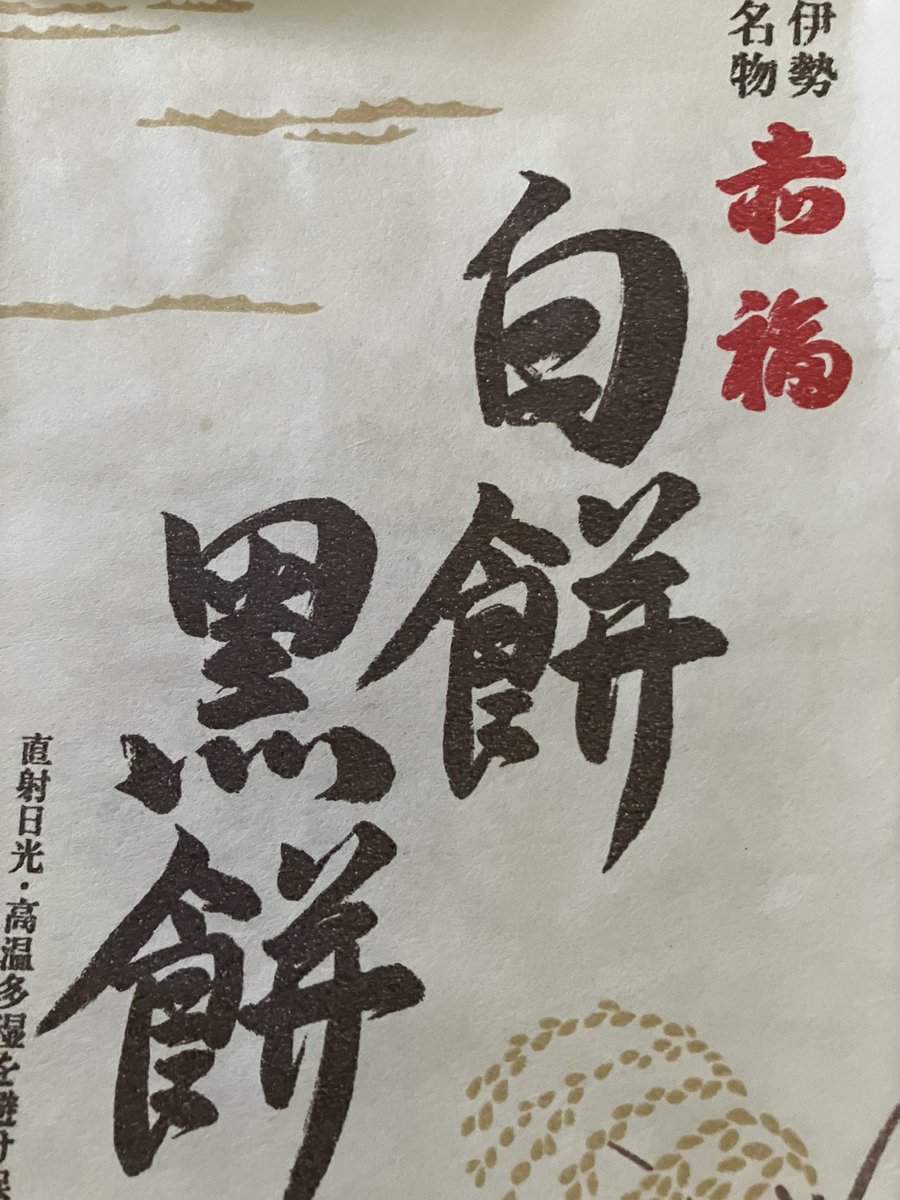 伊勢
名物
赤福
白餅
黒餅
直射日光・高温多湿を避け